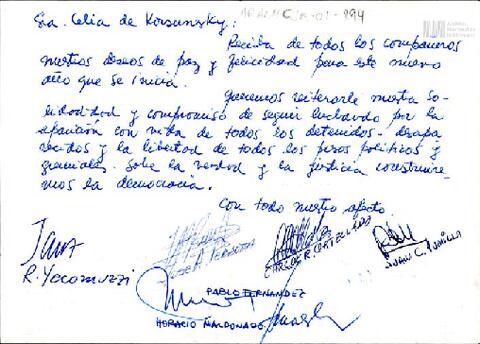 Sra. Celia de Korsunsky:
Reciba de todos los compañeros
nuestros deseos de paz y felicidad para este nuevo
año que se inicia.
Queremos reiterarle nuestra so-
lidaridad y compromiso de seguir luchando por la
aparición con vida de todos los detenidos-desapa-
recidos y la libertad de todos los presos políticos y
gremiales. Sobre la verdad y la justicia construire-
mos la democracia.
Con todo nuestro afecto.
R. Yacomuzzi
CARLOS R. CASTELLANO
JUAN C.
PABLO FERNANDEZ
HORACIO MALDONADO